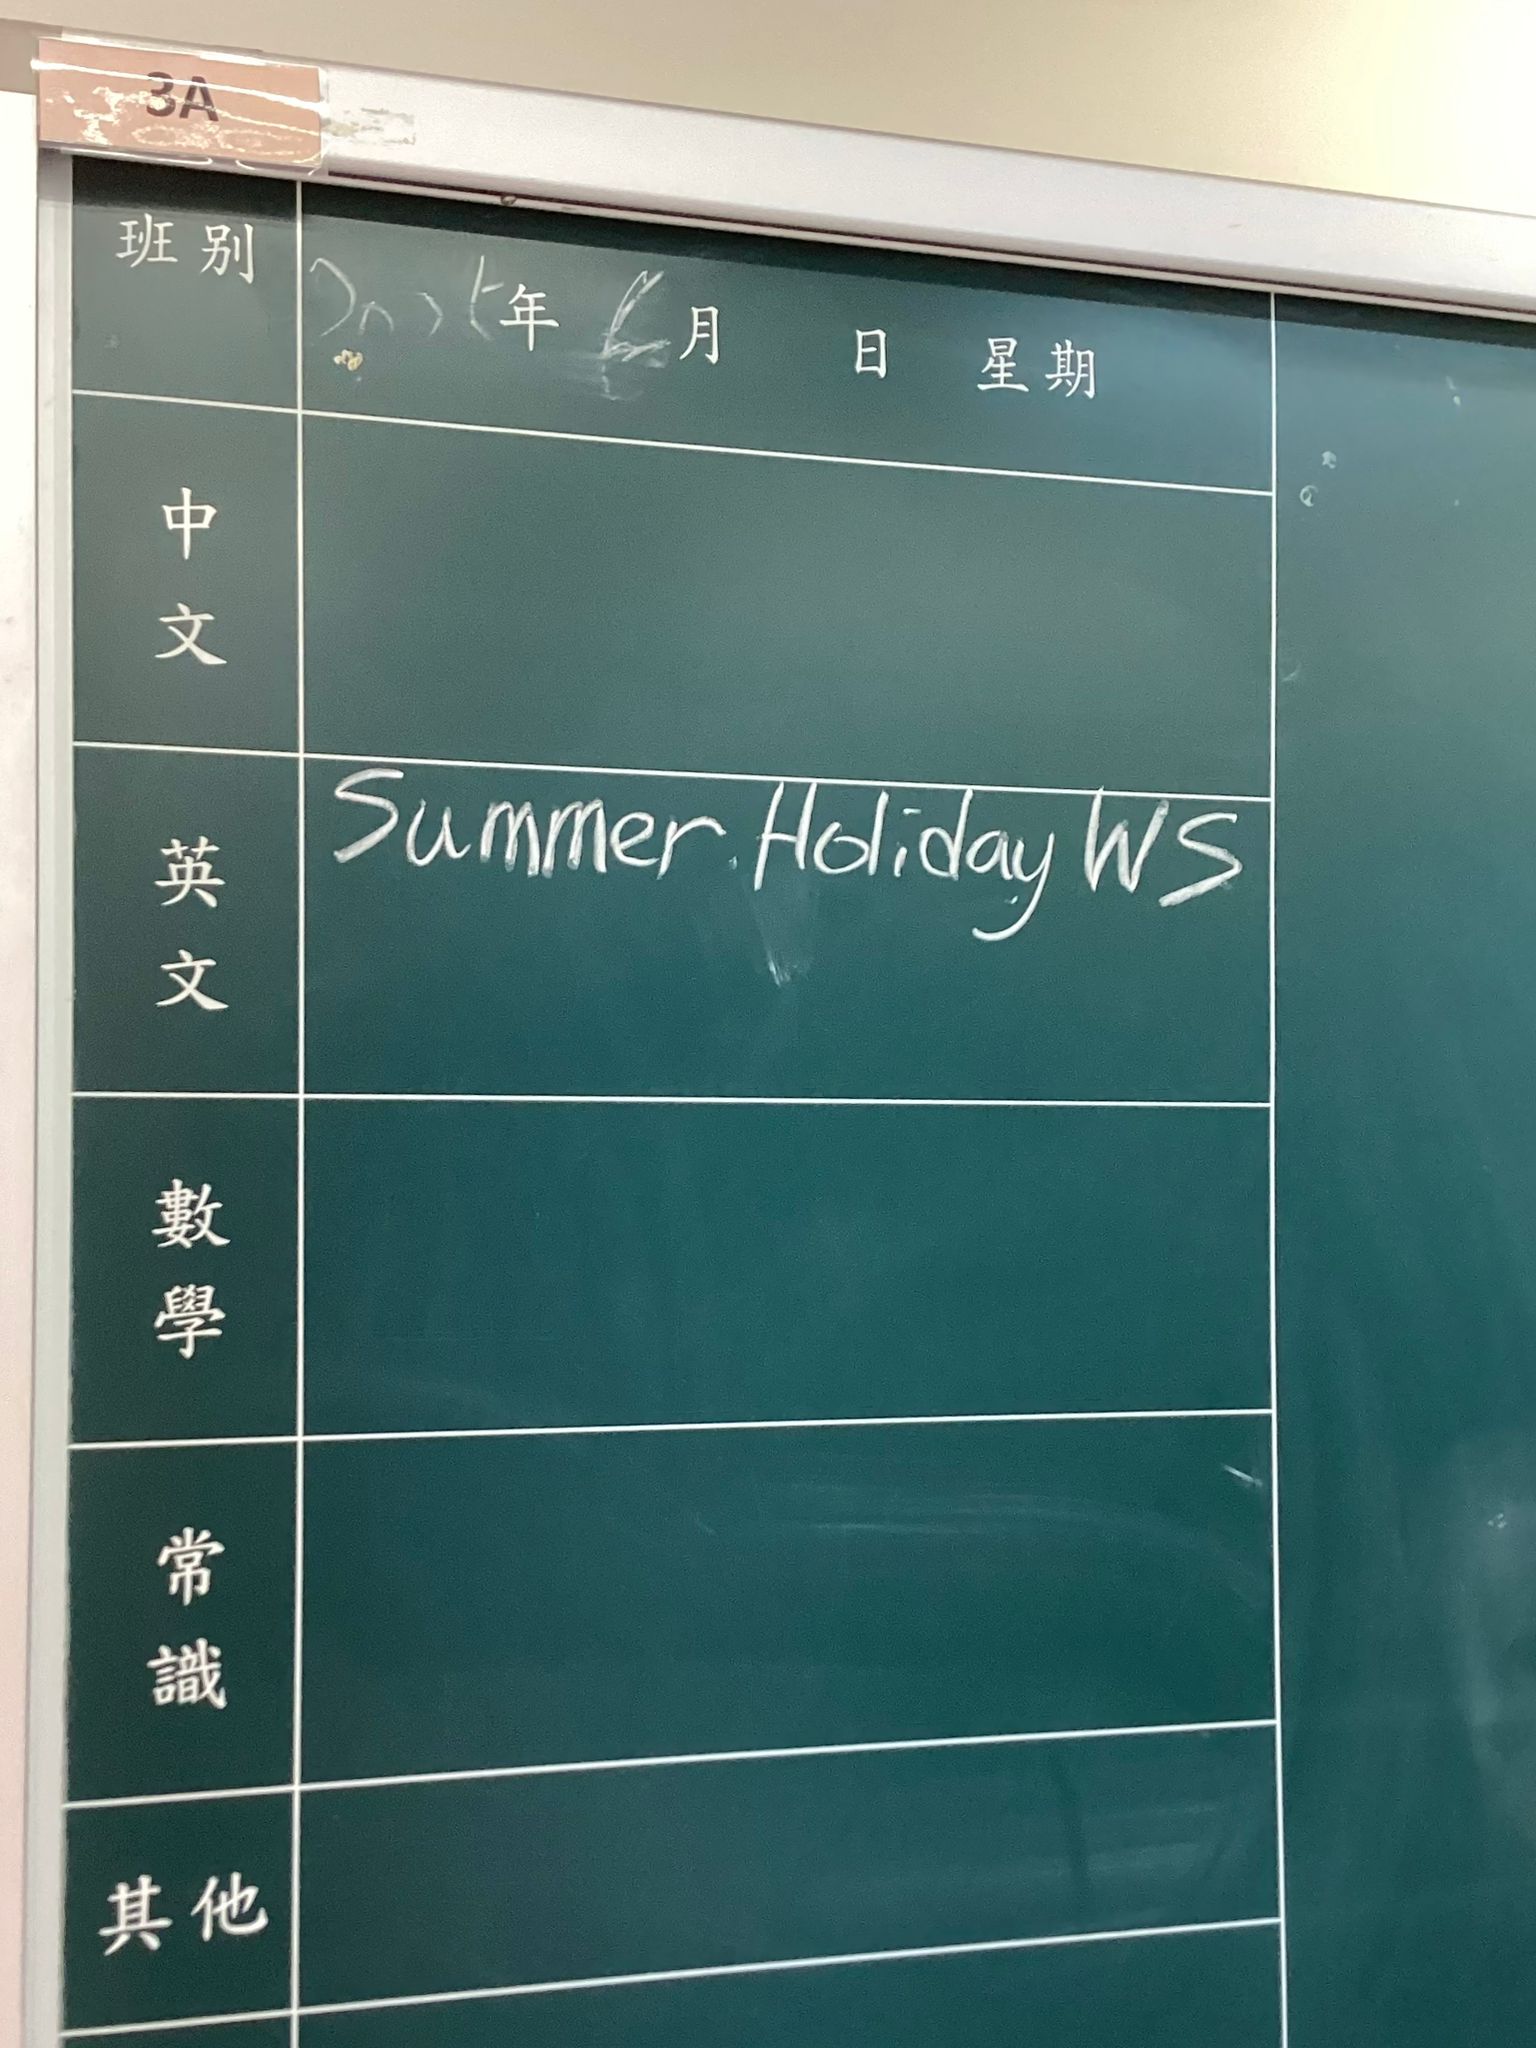 3A
班別
年 6 月 日 星期
中文
英文
Summer Holiday WS
數學
常識
其他